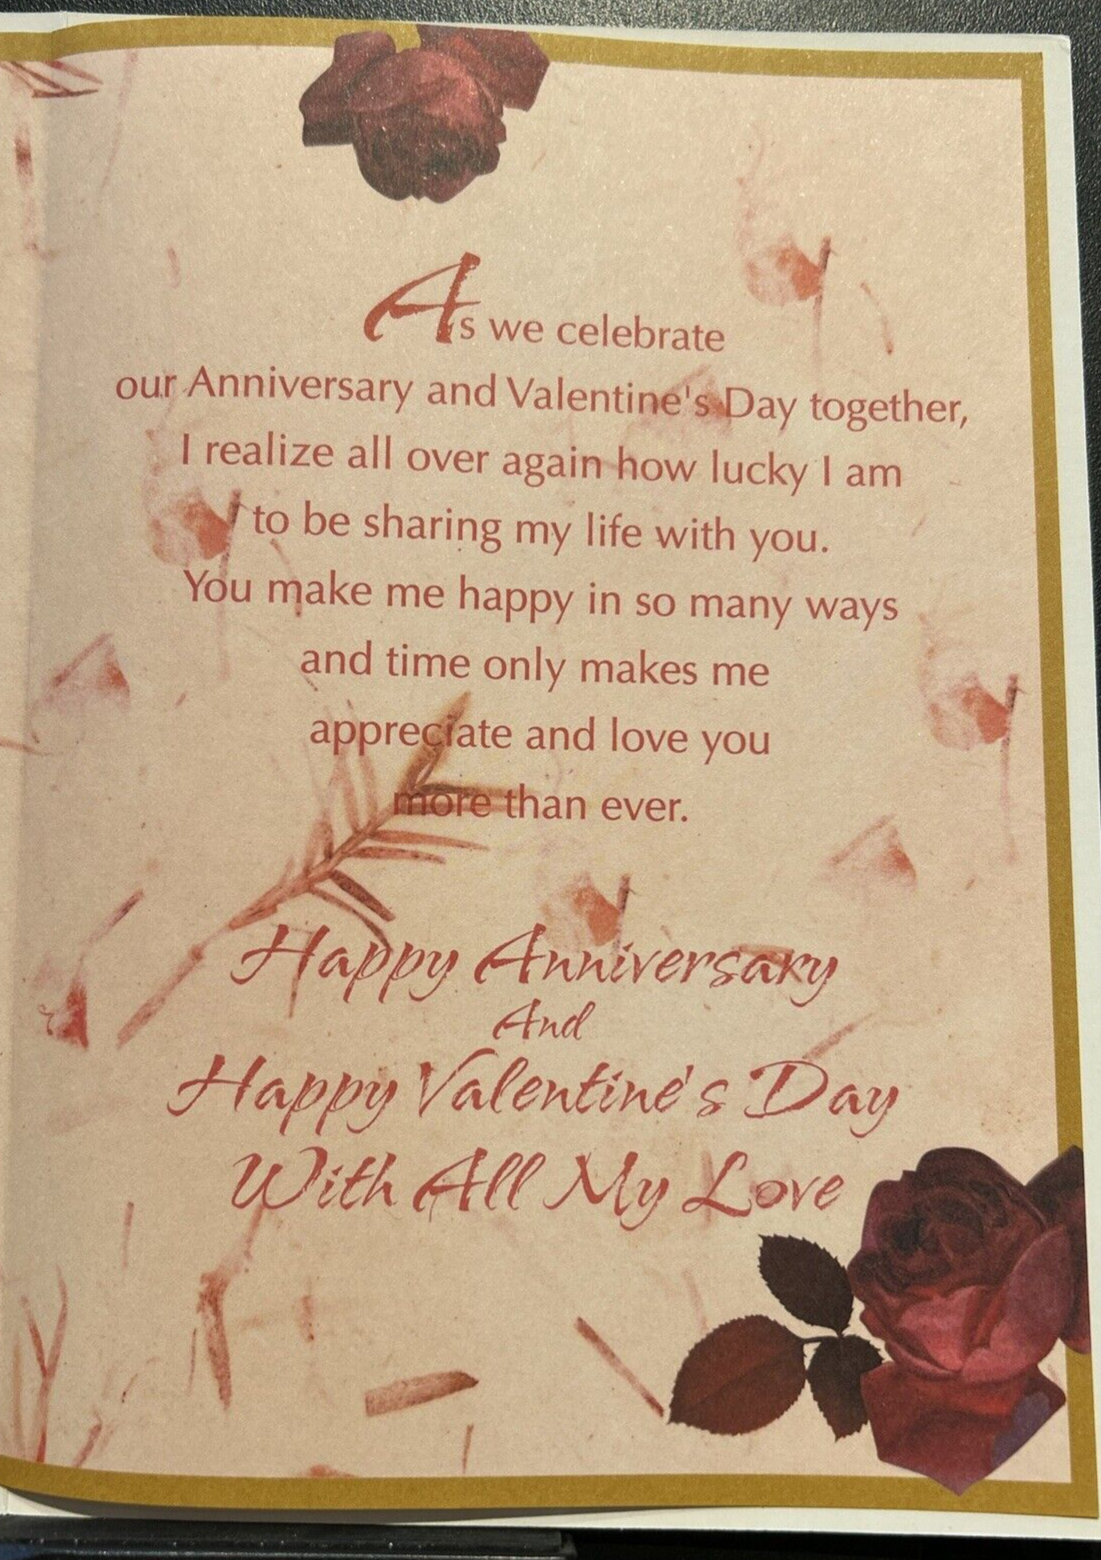 As we celebrate
our Anniversary and Valentine's Day together,
I realize all over again how lucky I am
to be sharing my life with you.
You make me happy in so many ways
and time only makes me
appreciate and love you
more than ever.
Happy Anniversary
And
Happy Valentine's Day
With All My Love